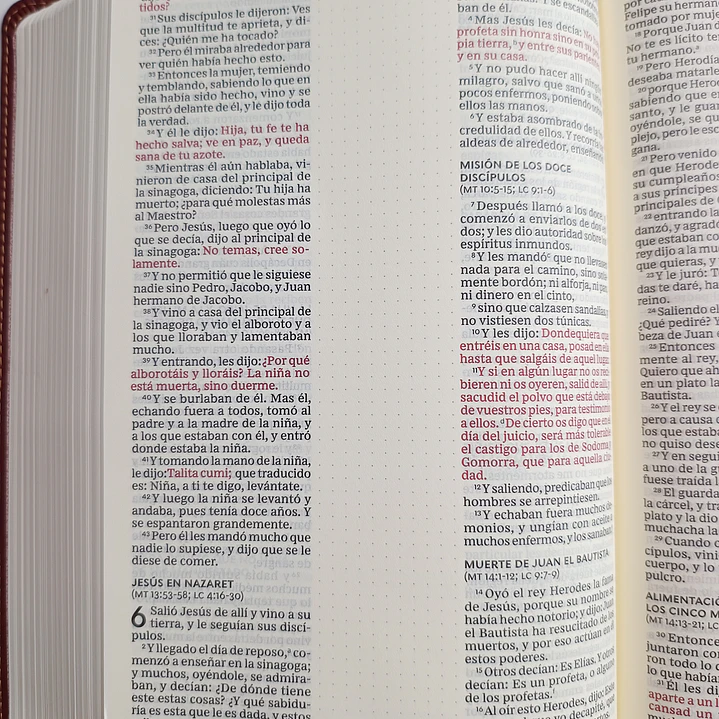 tidos?
31Sus discípulos le dijeron: Ves
que la multitud te aprieta, y di-
ces: ¿Quién me ha tocado?
32Pero él miraba alrededor para
ver quién había hecho esto.
33Entonces la mujer, temiendo
y temblando, sabiendo lo que en
ella había sido hecho, vino y se
postró delante de él, y le dijo toda
la verdad.
34Y él le dijo: Hija, tu fe te ha
hecho salva; ve en paz, y queda
sana de tu azote.
35Mientras él aún hablaba, vi-
nieron de casa del principal de
la sinagoga, diciendo: Tu hija ha
muerto; ¿para qué molestas más
al Maestro?
36Pero Jesús, luego que oyó lo
que se decía, dijo al principal de
la sinagoga: No temas, cree so-
lamente.
37Y no permitió que le siguiese
nadie sino Pedro, Jacobo, y Juan
hermano de Jacobo.
38Y vino a casa del principal de
la sinagoga, y vio el alboroto y a
los que lloraban y lamentaban
mucho.
39Y entrando, les dijo: ¿Por qué
alborotáis y lloráis? La niña no
está muerta, sino duerme.
40Y se burlaban de él. Mas él,
echando fuera a todos, tomó al
padre y a la madre de la niña, y
a los que estaban con él, y entró
donde estaba la niña.
41Y tomando la mano de la niña,
le dijo: Talita cumi; que traducido
es: Niña, a ti te digo, levántate.
42Y luego la niña se levantó y
andaba, pues tenía doce años. Y
se espantaron grandemente.
43Pero él les mandó mucho que
nadie lo supiese, y dijo que se le
diese de comer.
JESÚS EN NAZARET
(MT 13:53-58; LC 4:16-30)
6 Salió Jesús de allí y vino a su
tierra, y le seguían sus discí-
pulos.
2Y llegado el día de reposo,ᵃ co-
menzó a enseñar en la sinagoga;
y muchos, oyéndole, se admira-
ban, y decían: ¿De dónde tiene
este estas cosas? ¿Y qué sabidu-
ría es esta que le es dada, y estos
ban de él.
4Mas Jesús les decía: No
profeta sin honra sino en su
pia tierra,ᵇ y entre sus
y en su casa.
5Y no pudo hacer allí
milagro, salvo que sanó a
pocos enfermos, poniendo
ellos las manos.
6Y estaba asombrado de
credulidad de ellos. Y
aldeas de alrededor,
MISIÓN DE LOS DOCE
DISCÍPULOS
(MT 10:5-15; LC 9:1-6)
7Después llamó a los doce,
comenzó a enviarlos de dos
dos; y les dio autoridad sobre
espíritus inmundos.
8Y les mandóᶜ que no
nada para el camino, sino
mente bordón; ni alforja, ni pan,
ni dinero en el cinto,
9sino que calzasen sandalias,
no vistiesen dos túnicas.
10Y les dijo: Dondequiera que
entréis en una casa, posad en ella
hasta que salgáis de aquel lugar.
11Y si en algún lugar no os reci-
bieren ni os oyeren, salid de allí,
sacudid el polvo que está debajo
de vuestros pies, para testimonio
a ellos.ᵈ De cierto os digo que en
día del juicio, será más tolerable
el castigo para los de Sodoma
Gomorra, que para aquella ciu-
dad.
12Y saliendo, predicaban que los
hombres se arrepintiesen.
13Y echaban fuera muchos de-
monios, y ungían con aceite a
muchos enfermos, y los sanaban.
MUERTE DE JUAN EL BAUTISTA
(MT 14:1-12; LC 9:7-9)
14Oyó el rey Herodes la fama
de Jesús, porque su nombre se
había hecho notorio; y dijo: Juan
el Bautista ha resucitado de los
muertos, y por eso actúan en él
estos poderes.
15Otros decían: Es Elías. Y otros
decían: Es un profeta, o alguno
de los profetas.
16Al oír esto Herodes, dijo: Este
Felipe su hermano
tomado por mujer
18Porque Juan
No te es lícito
tu hermano.
19Pero Herodías
deseaba matarle
20porque Herodes
sabiendo que
santo, y le
oyéndole, se
plejo, pero le
gana.
21Pero venido
en que Herodes
su cumpleaños
a sus príncipes
principales de
22entrando la
danzó, y agradó
que estaban con
rey dijo a la
que quieras, y
23Y le juró: T
das te daré,
reino.
24Saliendo el
¿Qué pediré? Y
beza de Juan
25Entonces
mente al rey,
Quiero que
en un plato la
Bautista.
26Y el rey se
pero a causa
los que estaban
no quiso
27Y en segui
a uno de la
fuese traída
28El guarda
la cárcel, y
plato y la dio
muchacha
29Cuando
cípulos,
cuerpo, y lo
pulcro.
ALIMENTACIÓ
LOS CINCO M
(MT 14:13-21; LC
30Entonces
juntaron con
ron todo lo
lo que
31Él les
aparte a un
cansad un